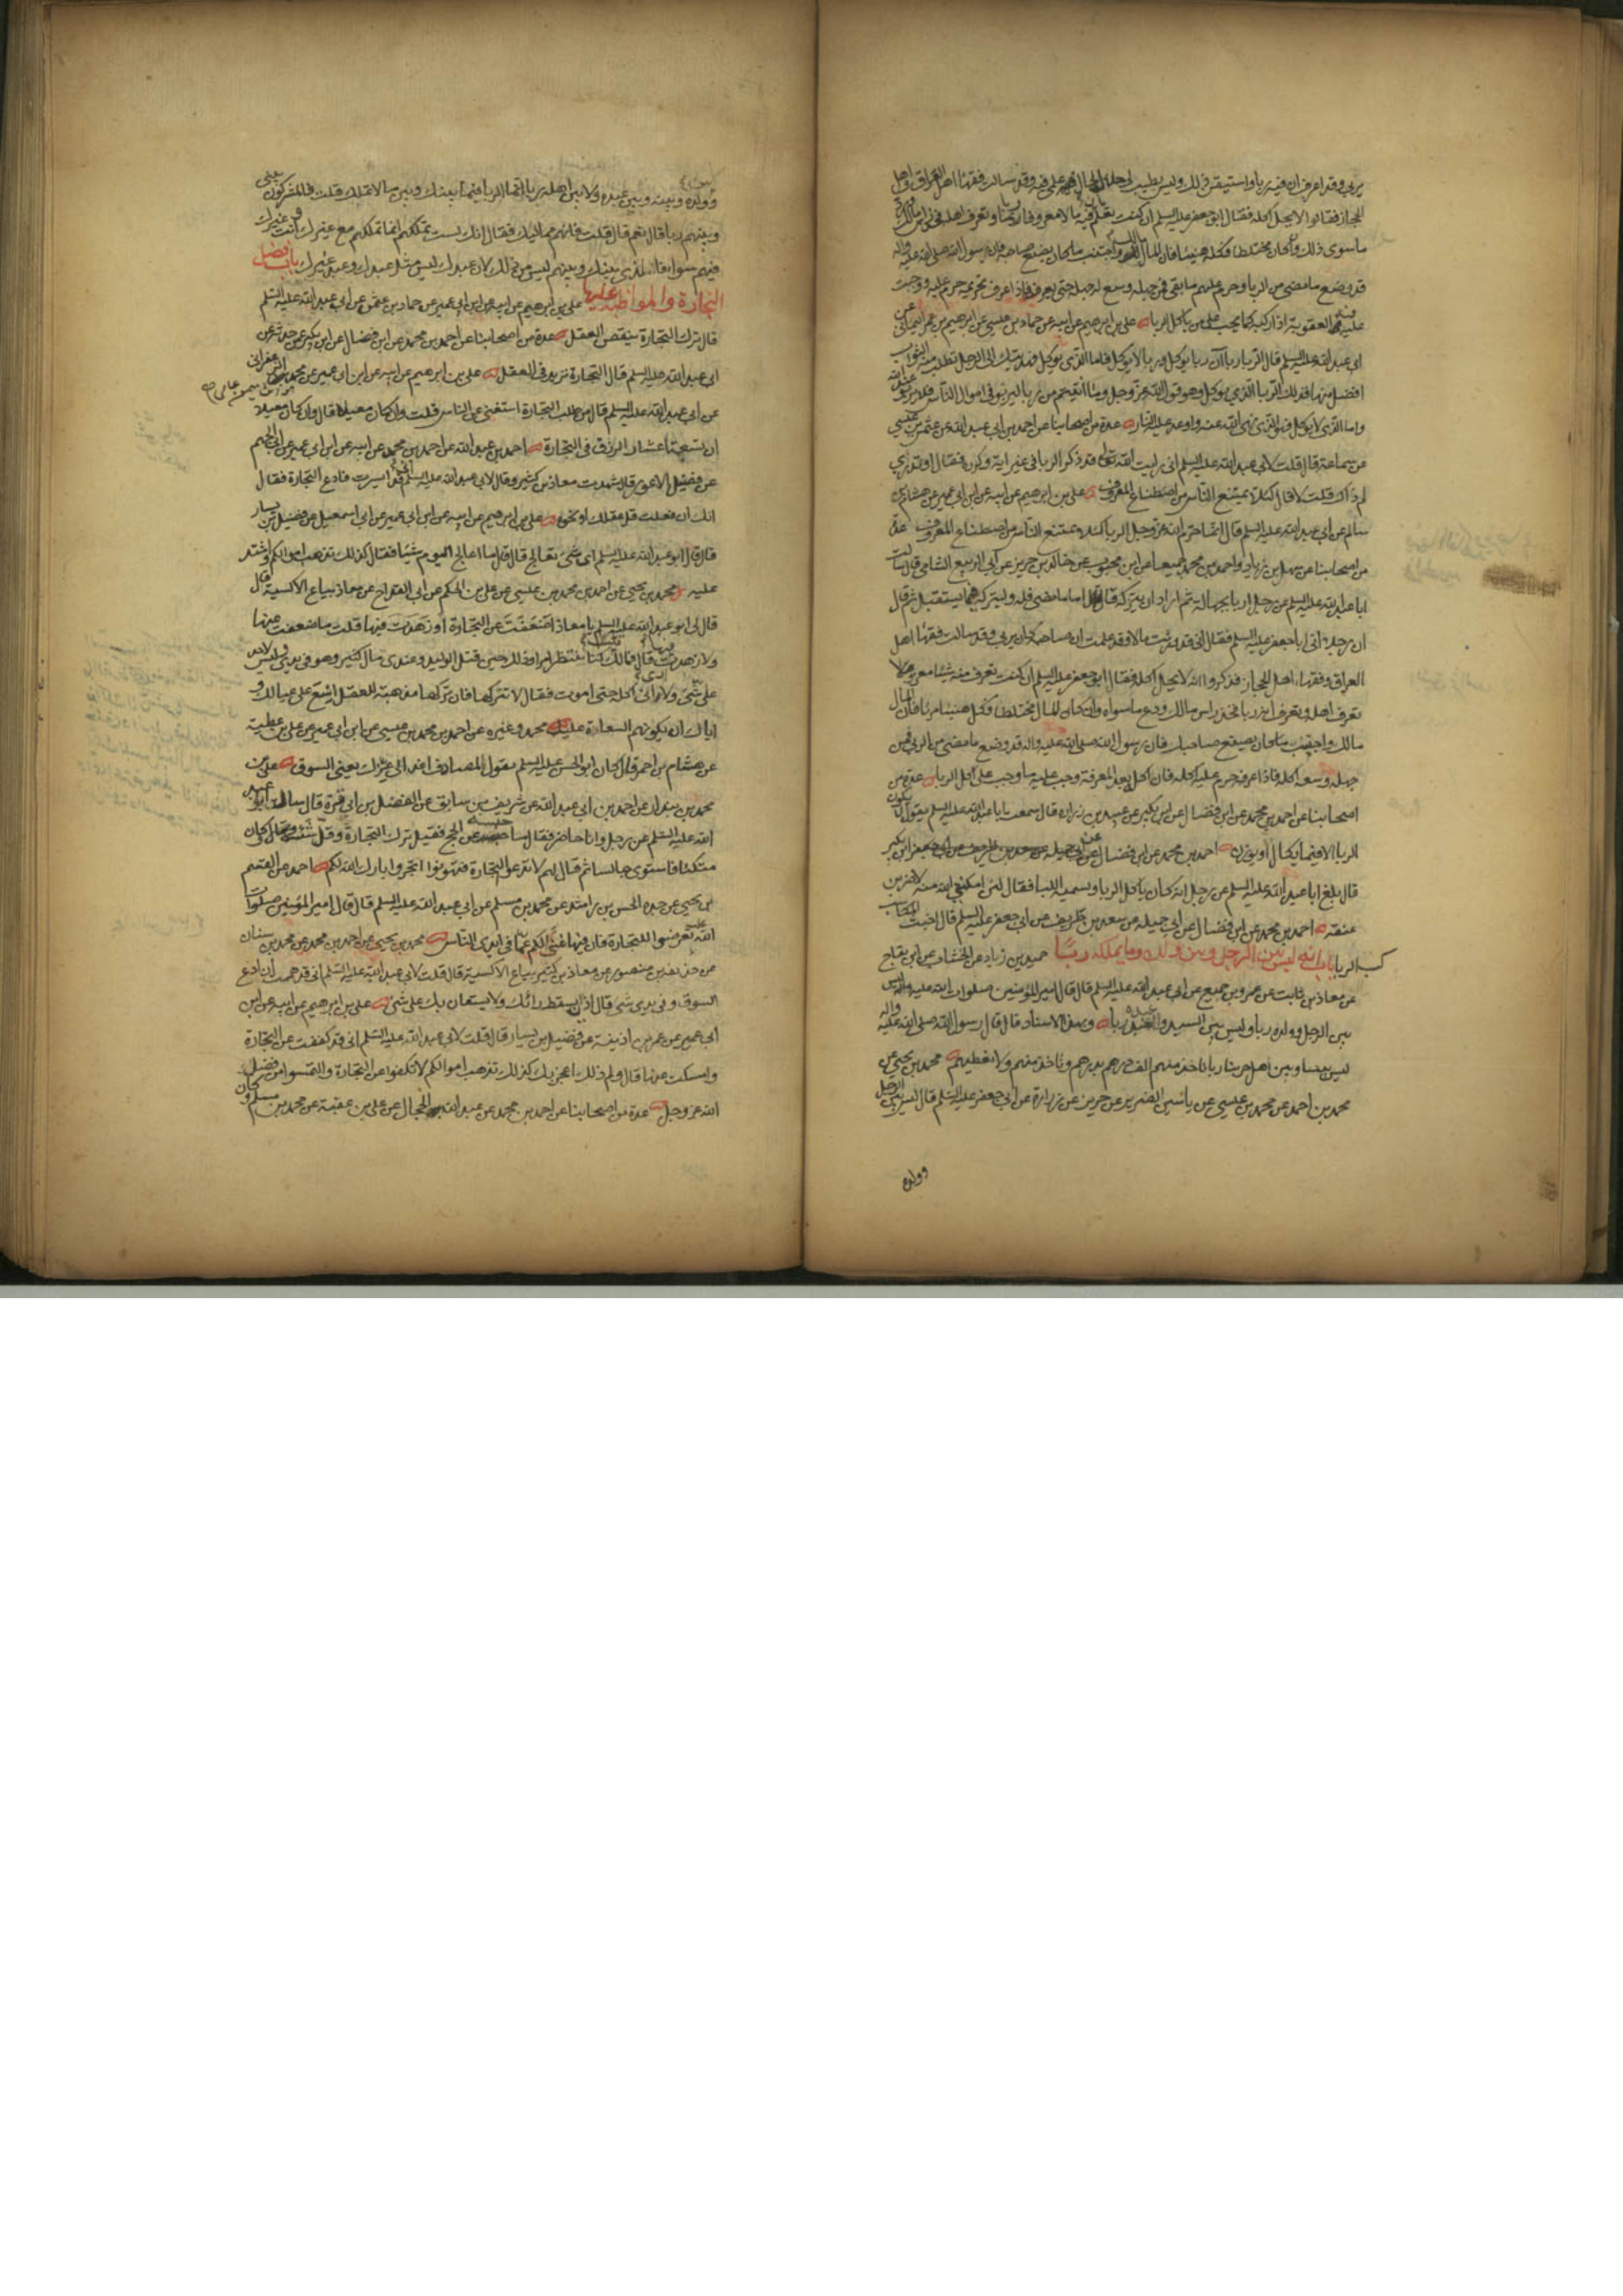 يربى وقد اعرف ان فيه ربا واستيقن ذلك وليس يطيب لى حلاله لحال علمى فيه وقد سالت فقهاء اهل العراق واهل
الحجاز فقالوا لا يحل اكله فقال ابو جعفر عليه السلم ان كنت تعلم بان فيه مالا معروفا ربا وتعرف اهله فخذ راس مالك ورد
ما سوى ذلك وان كان مختلطا فكله هنيئا فان المال مالك واجتنب ما كان يصنع صاحبه فان رسول الله صلى الله عليه واله
قد وضع ما مضى من الربا وحرم عليهم ما بقى فمن جهله وسع له جهله حتى يعرفه فاذا عرف تحريمه حرم عليه ووجبت
عليه فيه العقوبة اذا ركبه كما يجب على من ياكل الربا على بن ابرهيم عن ابيه عن حماد بن عيسى عن ابرهيم بن عمر اليمانى عن
ابى عبد الله عليه السلم قال الربا رباآن ربا يوكل وربا لا يوكل فاما الذى يوكل فهديتك الى الرجل تطلب منه الثواب
افضل منها فذلك الربا الذى يوكل وهو قول الله عز وجل وما اتيتم من ربا ليربو فى اموال الناس فلا يربو عند الله
واما الذى لا يوكل فهو الذى نهى الله عنه واوعد عليه النار عدة من اصحابنا عن احمد بن ابى عبد الله عن عثمن بن عيسى
عن سماعة قال قلت لابى عبد الله عليه السلم انى رايت الله تعالى قد ذكر الربا فى غير اية وكرره فقال او تدرى
لم ذاك قلت لا قال لئلا يمتنع الناس من اصطناع المعروف على بن ابرهيم عن ابيه عن ابن ابى عمير عن هشام بن
سالم عن ابى عبد الله عليه السلم قال انما حرم الله عز وجل الربا لئلا يمتنع الناس من اصطناع المعروف عدة
من اصحابنا عن سهل بن زياد واحمد بن محمد جميعا عن ابن محبوب عن خالد بن جرير عن ابى الربيع الشامى قال سالت
ابا عبد الله عليه السلم عن رجل اربا بجهالة ثم اراد ان يتركه قال اما ما مضى فله وليتركه فيما يستقبل ثم قال
ان رجلا اتى ابا جعفر عليه السلم فقال انى قد ورثت مالا وقد علمت ان صاحبه كان يربى وقد سالت فقهاء اهل
العراق وفقهاء اهل الحجاز فذكروا انه لا يحل اكله فقال ابو جعفر عليه السلم ان كنت تعرف منه شيئا معزولا
تعرف اهله وتعرف انه ربا فخذ راس مالك ودع ما سواه وان كان المال مختلطا فكله هنيئا مريئا فان المال
مالك واجتنب ما كان يصنع صاحبك فان رسول الله صلى الله عليه واله قد وضع ما مضى من الربا فمن
جهله وسعه اكله فاذا عرفه حرم عليه اكله فان اكله بعد المعرفة وجب عليه ما وجب على اكل الربا عدة من
اصحابنا عن احمد بن محمد عن ابن فضال عن ابن بكير عن عبيد بن زرارة قال سمعت ابا عبد الله عليه السلم يقول لا يكون
الربا الا فيما يكال او يوزن احمد بن محمد عن ابن فضال عن ابن بكير
قال بلغ ابا عبد الله عليه السلم عن رجل انه كان ياكل الربا ويسميه اللبا فقال لئن امكننى الله منه لاضربن
عنقه احمد بن محمد عن ابن فضال عن ابى جميله عن سعد بن طريف عن ابى جعفر عليه السلم قال اخبث المكاسب
كسب الربا باب انه ليس بين الرجل وبين ولده وما يملكه ربا حميد بن زياد عن الخشاب عن ابن بقاح
عن معاذ بن ثابت عن عمرو بن جميع عن ابى عبد الله عليه السلم قال قال امير المؤمنين صلوات الله عليه واله ليس
بين الرجل وولده ربا وليس بين السيد والعبد ربا وبهذا الاسناد قال قال رسول الله صلى الله عليه واله
ليس بيننا وبين اهل حربنا ربا ناخذ منهم الف درهم بدرهم وناخذ منهم ولا نعطيهم محمد بن يحيى عن
محمد بن احمد عن محمد بن عيسى عن ياسين الضرير عن حريز عن زرارة عن ابى جعفر عليه السلم قال ليس بين الرجل
وولده
وولده وبينه وبين عبده ولا بين اهله ربا انما الربا فيما بينك وبين ما لا تملك قلت فالمشركون بينى
وبينهم ربا قال نعم قال قلت فانهم مماليك فقال انك لست تملكهم انما تملكهم مع غيرك انت وغيرك
فيهم سواء فالذى بينك وبينهم ليس من ذلك لان عبدك ليس مثل عبدك وعبد غيرك باب فضل
التجارة والمواظبة عليها على بن ابرهيم عن ابيه عن ابن ابى عمير عن حماد بن عثمن عن ابى عبد الله عليه السلم
قال ترك التجارة ينقص العقل عدة من اصحابنا عن احمد بن محمد عن ابن فضال عن ابن بكير عمن حدثه عن
ابى عبد الله عليه السلم قال التجارة تزيد فى العقل على بن ابرهيم عن ابيه عن ابن ابى عمير عن محمد الزعفرانى
عن ابى عبد الله عليه السلم قال من طلب التجارة استغنى عن الناس قلت وان كان معيلا قال وان كان معيلا
ان تسعة اعشار الرزق فى التجارة احمد بن عبد الله عن احمد بن محمد عن ابيه عن ابن ابى عمير عن ابى الجهم
عن فضيل الاعور قال شهدت معاذ بن كثير وقال لابى عبد الله عليه السلم انى قد ايسرت فادع التجارة فقال
انك ان فعلت قل عقلك او نحوه على بن ابرهيم عن ابيه عن ابن ابى عمير عن ابى اسمعيل عن فضيل بن يسار
قال قال ابو عبد الله عليه السلم اى شئ تعالج قال قلت ما اعالج اليوم شيئا فقال كذلك تذهب اموالكم واشتد
عليه محمد بن يحيى عن احمد بن محمد بن عيسى عن على بن الحكم عن ابى الفرج عن معاذ بياع الاكسية قال
قال لى ابو عبد الله عليه السلم يا معاذ اضعفت عن التجارة او زهدت فيها قلت ما ضعفت عنها
ولا زهدت فيها قال فمالك قلت كنا ننتظر امرا وذلك حين قتل الوليد وعندى مال كثير وهو فى يدى وليس لاحد
على شئ ولا ارانى اكله حتى اموت فقال لا تتركها فان تركها مذهبة للعقل اسع على عيالك و
اياك ان يكون هم السعاة عليك محمد وغيره عن احمد بن محمد بن عيسى عن ابن ابى عمير عن على بن عطية
عن هشام بن احمر قال كان ابو الحسن عليه السلم يقول لمصادف اغد الى عزك يعنى السوق على بن
محمد بن بندار عن احمد بن ابى عبد الله عن شريف بن سابق عن الفضل بن ابى قرة قال سال ابو عبد
الله عليه السلم عن رجل وانا حاضر فقال ما حبسه عن الحج فقيل ترك التجارة وقل شيئه قال وكان
متكئا فاستوى جالسا ثم قال لهم لا تدعوا التجارة فتهونوا اتجروا بارك الله لكم احمد عن القسم
بن يحيى عن جده الحسن بن راشد عن محمد بن مسلم عن ابى عبد الله عليه السلم قال قال امير المؤمنين صلوات
الله عليه تعرضوا للتجارة فان فيها غنى لكم عما فى ايدى الناس محمد بن يحيى عن احمد بن محمد عن محمد بن سنان
عن حذيفة بن منصور عن معاذ بن كثير بياع الاكسية قال قلت لابى عبد الله عليه السلم انى قد هممت ان ادع
السوق وفى يدى شئ قال اذا يسقط رائك ولا يستعان بك على شئ على بن ابرهيم عن ابيه عن ابن
ابى عمير عن عمر بن اذينة عن فضيل بن يسار قال قلت لابى عبد الله عليه السلم انى قد كففت عن التجارة
وامسكت عنها قال ولم ذلك اعجز بك كذلك تذهب اموالكم لا تكفوا عن التجارة والتمسوا من فضل
الله عز وجل عدة من اصحابنا عن احمد بن محمد عن عبد الله الحجال عن على بن عقبة عن محمد بن مسلم وكان